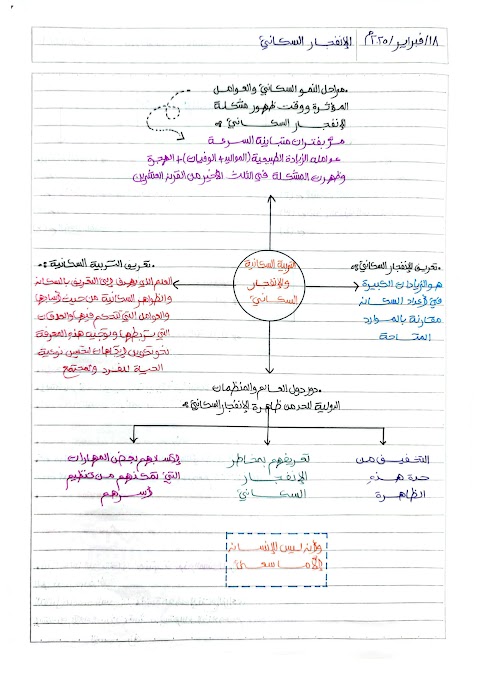 ١٨/فبراير/٢٠٢٥م
الإنفجار السكاني
•مراحل النمو السكاني والعوامل
المؤثرة ووقت ظهور مشكلة
الإنفجار السكاني :
مرّ بفترات متباينة السرعة
عوامله الزيادة الطبيعية (المواليد + الوفيات) + الهجرة
وظهرت المشكلة في الثلث الأخير من القرن العشرين
التربية السكانية
والإنفجار
السكاني
•تعريف الإنفجار السكاني :
هو الزيادات الكبيرة
في أعداد السكان
مقارنة بالموارد
المتاحة
•تعريف التربية السكانية :
العلم الذي يهدف إلى التعريف بالسكان
والظواهر السكانية من حيث أسبابها
والعوامل التي تتحكم فيها والعلاقات
التي تربطها وتوجيه هذه المعرفة
نحو تكوين إتجاهات لتحسن نوعية
الحياة للفرد والمجتمع
•دور دول العالم والمنظمات
الدولية للحد من ظاهرة الإنفجار السكاني :
التخفيف من
حدة هذه
الظاهرة
تعريفهم بمخاطر
الإنفجار
السكاني
إكسابهم بعض المهارات
التي تمكنهم من تنظيم
أسرهم
وأن ليس للإنسان
إلا ما سعى